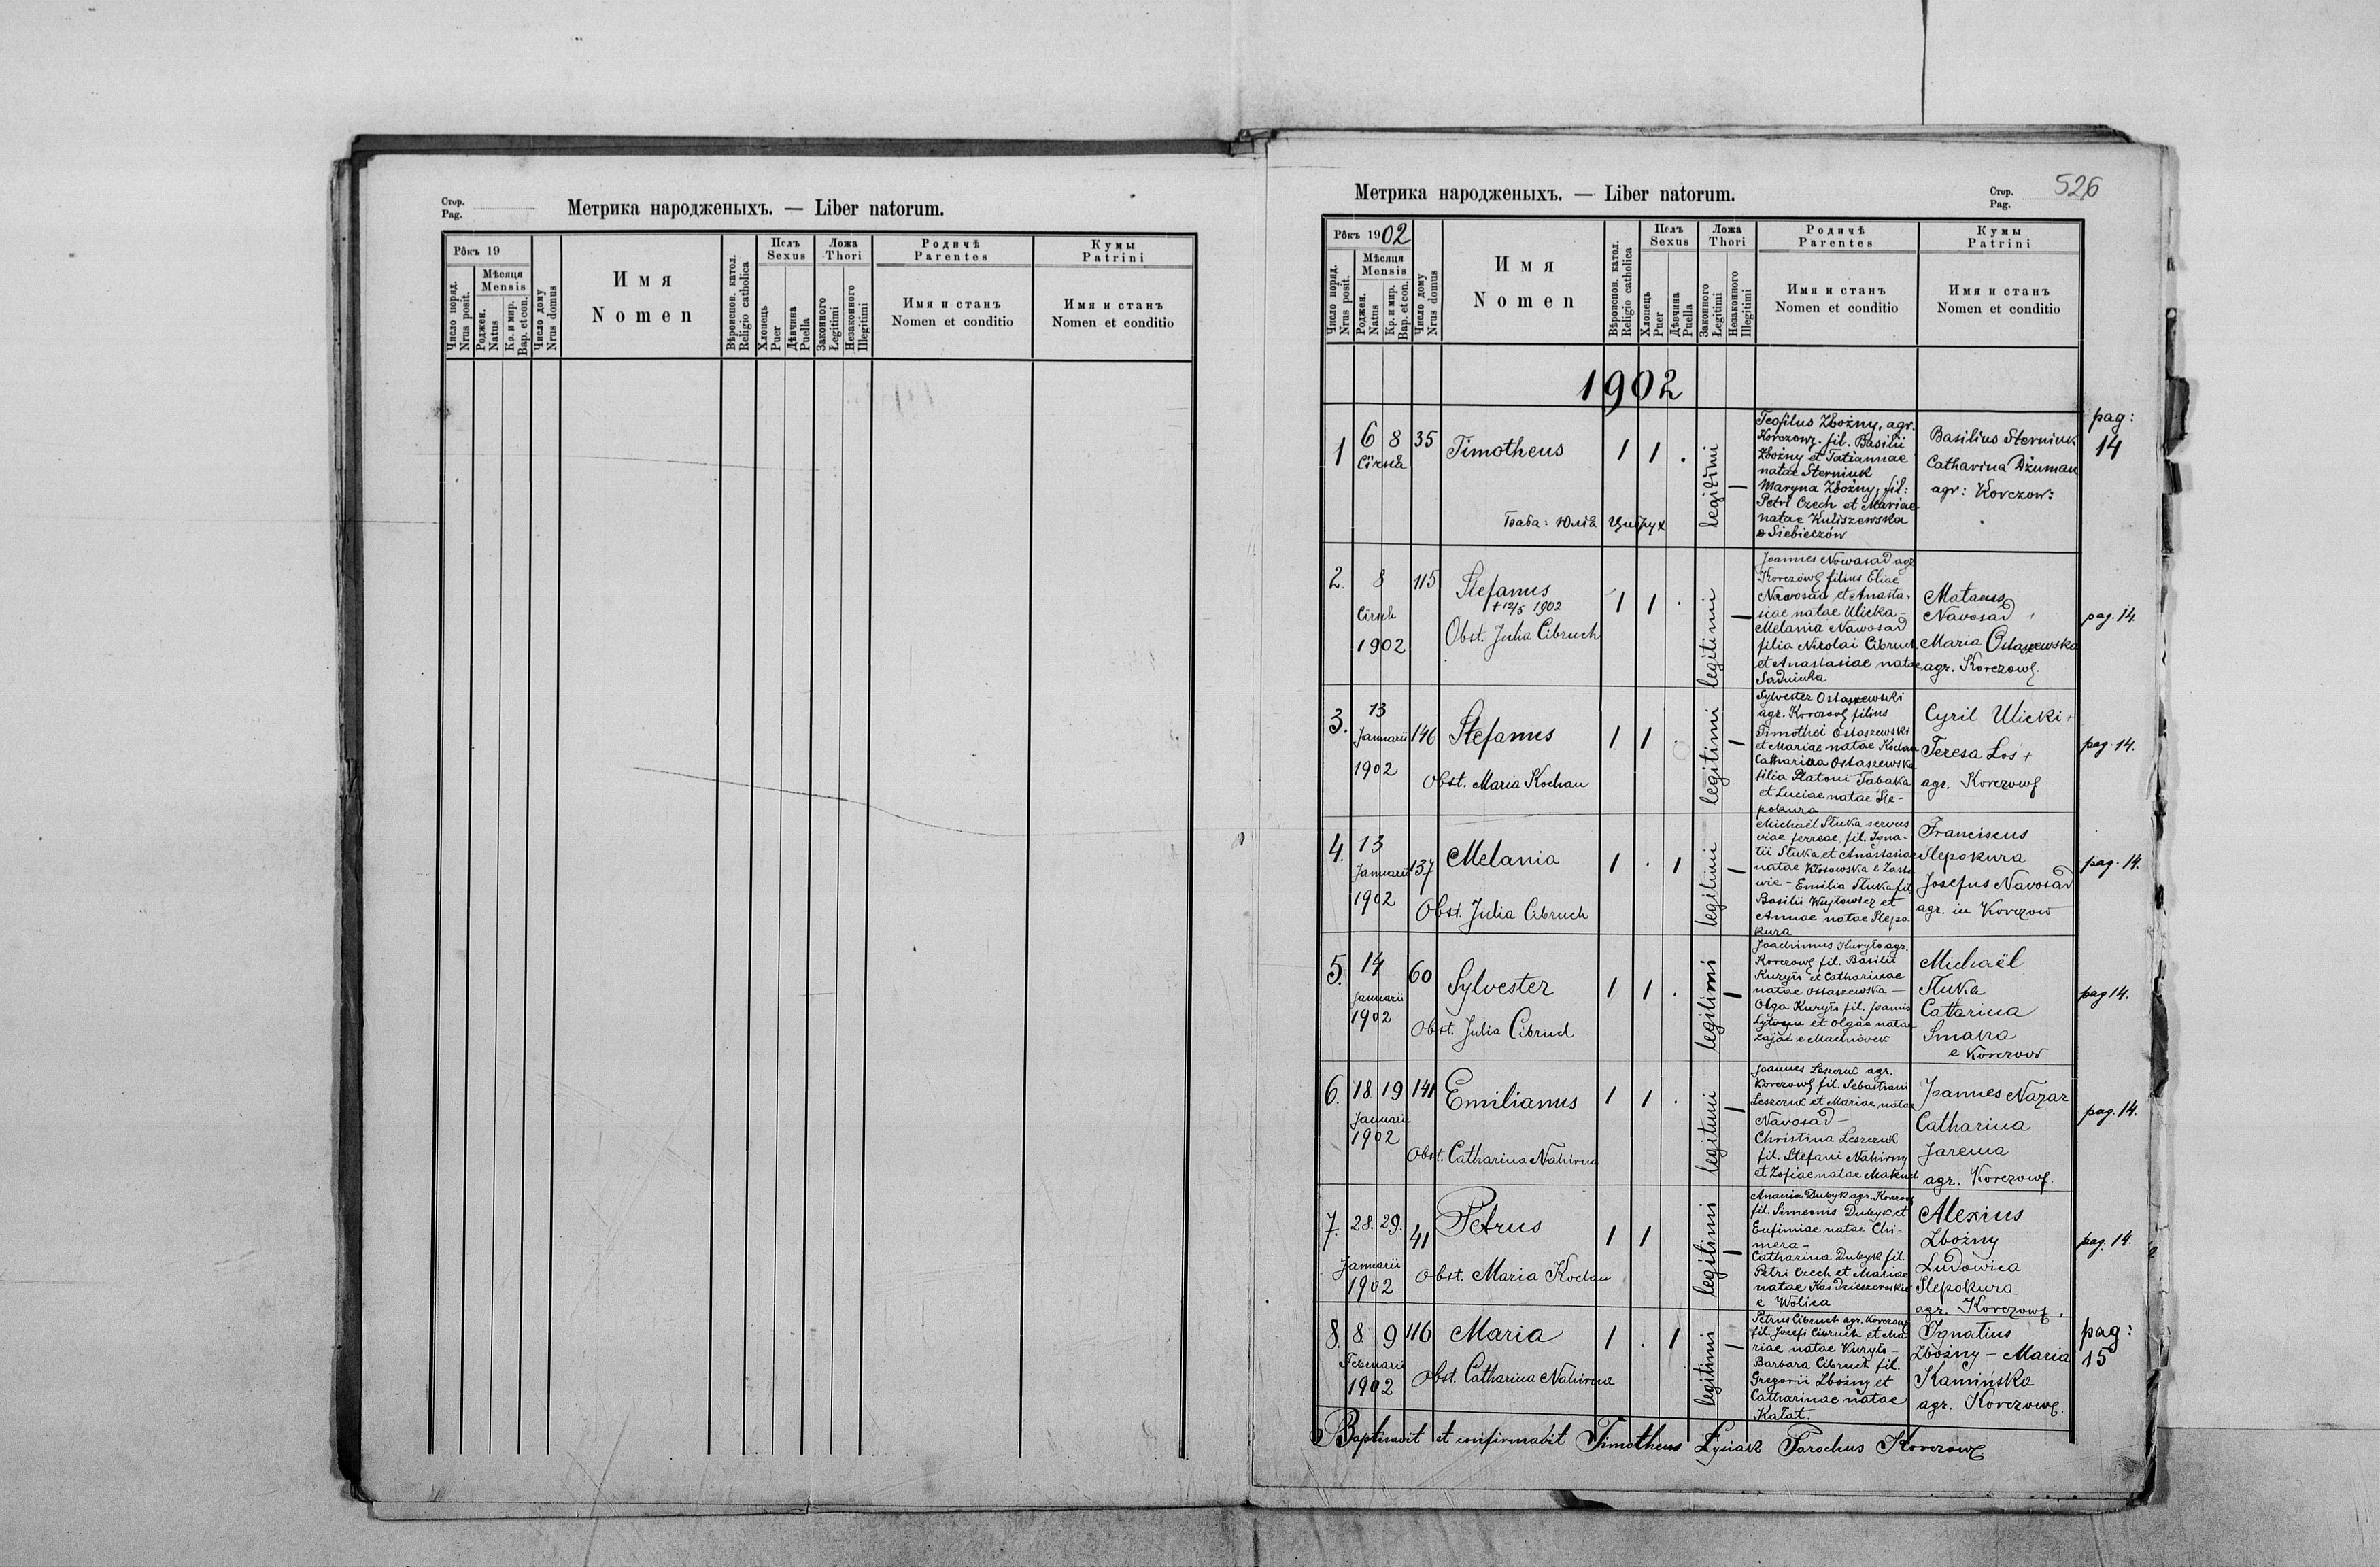 Стор.
Pag.
Метрика народженыхъ. — Liber natorum.
Рôкъ 19
Число поряд.
Nrus posit.
Мѣсяця
Mensis
Роджен.
Natus
Кр. и мир.
Bap. et con.
Число дому
Nrus domus
Имя
Nomen
Вѣроиспов. катол.
Religio catholica
Полъ
Sexus
Хлопець
Puer
Дѣвчина
Puella
Ложа
Thori
Законного
Legitimi
Незаконного
Illegitimi
Родичѣ
Parentes
Имя и станъ
Nomen et conditio
Кумы
Patrini
Имя и станъ
Nomen et conditio
Метрика народженыхъ. — Liber natorum.
Стор.
Pag.
526
Рôкъ 1902
Число поряд.
Nrus posit.
Мѣсяця
Mensis
Роджен.
Natus
Кр. и мир.
Bap. et con.
Число дому
Nrus domus
Имя
Nomen
Вѣроиспов. катол.
Religio catholica
Полъ
Sexus
Хлопець
Puer
Дѣвчина
Puella
Ложа
Thori
Законного
Legitimi
Незаконного
Illegitimi
Родичѣ
Parentes
Имя и станъ
Nomen et conditio
Кумы
Patrini
Имя и станъ
Nomen et conditio
1902
1 6 8 35 Timotheus 1 1 .
Баба: Юлія Цибрух
legitimi
Teofilus Zbożny, agr.
Korczow. fil. Basilii
Zbożny et Tatiannae
natae Sterniuk
Maryna Zbożny, fil:
Petri Czech et Mariae
natae Kuliszewska
e Siebieczów
Basilius Sterniuk
Catharina Dżuman
agr: Korczow:
pag:
14
2. 8 115 Stefanus 1 1 .
1902
+ 12/5 1902
Obst. Julia Cibruch
legitimi
Joannes Nowosad agr.
filius Eliae
Nawosad et Anasta-
siae natae Ulicka -
Melania Nawosad
filia Nicolai Cibruch
et Anastasiae natae
Navosad
Maria Ostaszewska
agr. Korczow.
pag. 14.
3. 13 146 Stefanus 1 1 .
Januarii
1902
Obst. Maria Kochan
legitimi
Sylvester Ostaszewski
agr. filius
Timothei Ostaszewski
et Mariae natae Kochan
Catharina Ostaszewska
filia Platoni Tabaka
et Luciae natae Sle-
pokura
Cyril Ulicki +
Teresa Los +
agr. Korczow
pag. 14.
4. 13 137 Melania 1 . 1
Januarii
1902
Obst. Julia Cibruch
legitimi
Michaël Stuka servus
viae ferreae, fil. Igna-
tii Stuka et Anastasiae
natae Kłosowska e
- Emilia Stuka fil.
Basilii Wujtowicz et
Annae natae Slepo-
kura
Franciscus
Slepokura
Josefus Navosad
agr. in Korczow
pag. 14.
5. 14 60 Sylvester 1 1 .
Januarii
1902
Obst. Julia Cibruch
legitimi
Joachimus Kuryło agr.
fil. Basilii
Kuryło et Catharinae
natae Ostaszewska —
Olga Kuryło fil. Joannis
et Olgae natae
Zając e Machnówek
Michaël
Stuka
Catarina
Smaha
e Korczow
pag 14.
6. 18 19 141 Emilianus 1 1 .
Januarii
1902
Obst. Catharina Nahirna
legitimi
Joannes Leszczuk agr.
fil. Sebastiani
Leszczuk et Mariae natae
Navosad —
Christina Leszczuk
fil. Stefani Nahirny
et Zofiae natae Makuch
Joannes Nazar
Catharina
Jarema
agr. Korczow.
pag. 14.
7. 28. 29. 41 Petrus 1 1
Januarii
1902
Obst. Maria Kochan
legitimi
Anania Dubyk agr.
fil. Simeonis Dubyk et
Eufimiae natae Chi-
mera -
Catharina Dubyk fil
Petri Czech et Mariae
natae
e Wolica
Alexius
Zbożny
Ludowica
Slepokura
agr. Korczow.
pag. 14.
8. 8 9 116 Maria 1 . 1
Februarii
1902
Obst. Catharina Nahirna
legitimi
Petrus Cibruch agr.
fil. Josefi Cibruch et Ma-
riae natae Kuryło -
Barbara Cibruch fil.
Gregorii Zbożny et
Catharinae natae
Kałat.
Ignatius
Zbożny — Maria
Kamińska
agr. Korczow.
pag:
15
Baptisavit et confirmavit Timotheus Lysiak Parochus Korczow